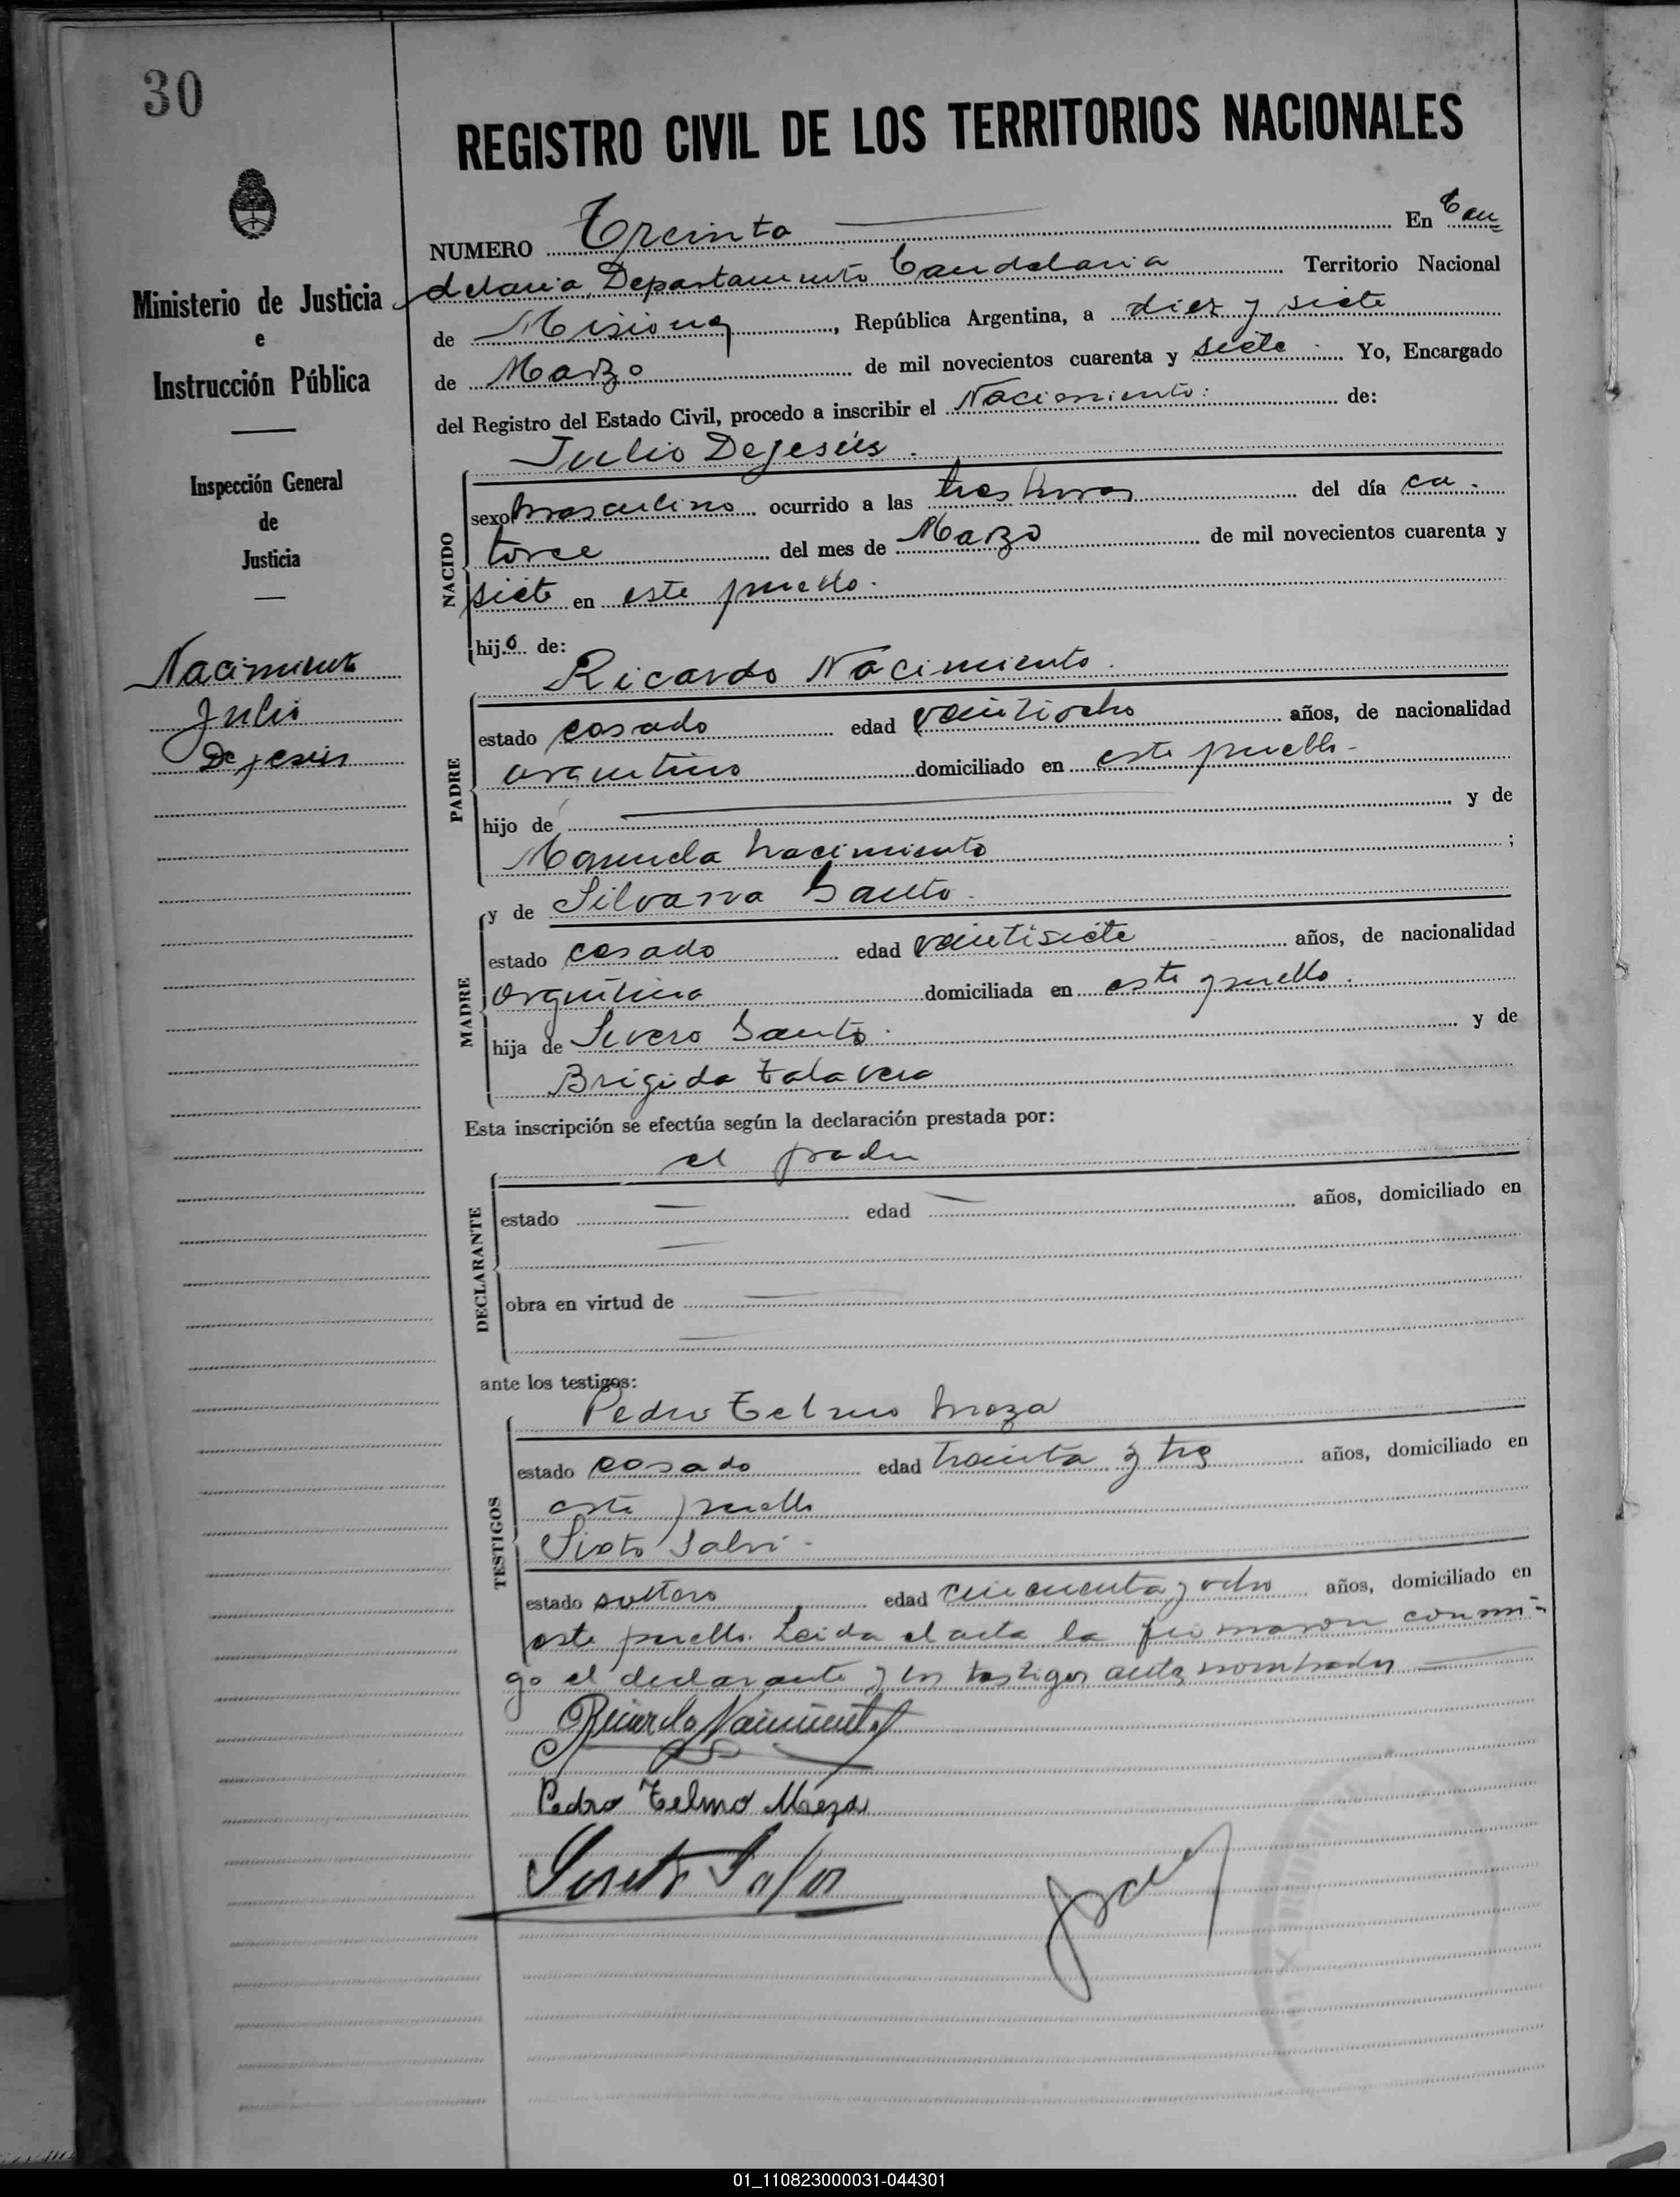 30
REGISTRO CIVIL DE LOS TERRITORIOS NACIONALES
NUMERO Treinta En Can
delaria, Departamento Candelaria Territorio Nacional
de Misiones, República Argentina, a diez y siete
de Marzo de mil novecientos cuarenta y siete Yo, Encargado
del Registro del Estado Civil, procedo a inscribir el Nacimiento: de:
Julio Dejesús.
NACIDO
sexo masculino ocurrido a las tres horas del día ca-
torce del mes de Marzo de mil novecientos cuarenta y
siete en este pueblo.
hijo de:
Ricardo Nacimiento.
PADRE
estado casado edad veintiocho años, de nacionalidad
argentino domiciliado en este pueblo-
hijo de y de
Manuela Nacimiento;
MADRE
y de Silvana Santo.
estado casado edad veintisiete años, de nacionalidad
argentina domiciliada en este pueblo.
hija de Severo Santo. y de
Brigida Talavera
Esta inscripción se efectúa según la declaración prestada por:
el padre
DECLARANTE
estado edad años, domiciliado en
obra en virtud de
ante los testigos:
Pedro Telmo Meza
TESTIGOS
estado casado edad treinta y tres años, domiciliado en
este pueblo
estado soltero edad cincuenta y ocho años, domiciliado en
este pueblo. Leida el acta la firmaron conmi-
go el declarante y los testigos antes nombrados
Ricardo Nacimiento
Pedro Telmo Meza
Ministerio de Justicia
e
Instrucción Pública
Inspección General
de
Justicia
Nacimiento
Julio
Dejesús
01_110823000031-044301